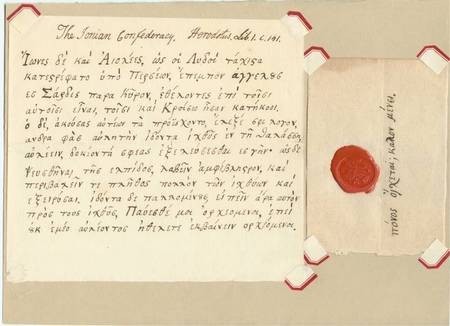 The Ionian Confederacy. Herodotus. Lib. 1. c. 141.
Ἴωνες δὲ καὶ Αἰολεῖς, ὡς οἱ Λυδοὶ τάχιστα
κατεστρέφατο ὑπὸ Περσέων, ἔπεμπον ἀγγέλους
ἐς Σάρδις παρὰ Κῦρον, ἐθέλοντες ἐπὶ τοῖσι
αὐτοῖσι εἶναι, τοῖσι καὶ Κροίσῳ ἦσαν κατήκοοι.
ὁ δὲ, ἀκούσας αὐτέων τὰ προΐσχοντο, ἔλεξέ σφι λόγον,
ἄνδρα φὰς αὐλητὴν ἰδόντα ἰχθῦς ἐν τῇ θαλάσσῃ,
αὐλέειν, δοκέοντά σφεας ἐξελεύσεσθαι ἐς γῆν· ὡς δὲ
ψευσθῆναι τῆς ἐλπίδος, λαβεῖν ἀμφίβληστρον, καὶ
περιβαλεῖν τε πλῆθος πολλὸν τῶν ἰχθύων καὶ
ἐξειρύσαι. ἰδόντα δὲ παλλομένους εἰπεῖν ἄρα αὐτὸν
πρὸς τοὺς ἰχθῦς, Παύεσθέ μοι ὀρχεόμενοι, ἐπεὶ
οὐδ' ἐμέο αὐλέοντος ἠθέλετε ἐκβαίνειν ὀρχεόμενοι.
πόνος οἴχεται; καλὸν μένει.